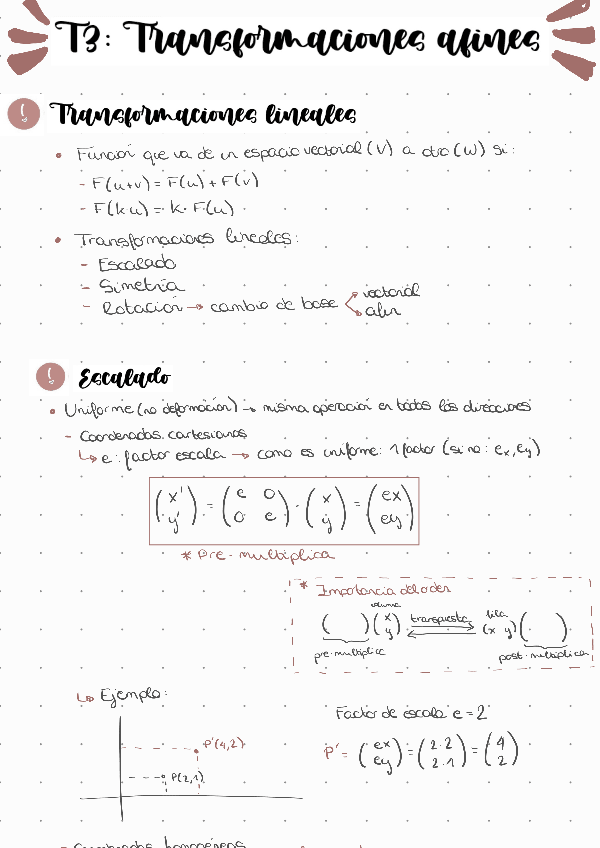 T3: Transformaciones afines
! Transformaciones lineales
• Función que va de un espacio vectorial (V) a otro (W) si:
- F(u+v) = F(u) + F(v)
- F(ku) = k · F(u)
• Transformaciones lineales:
- Escalado
- Simetría
- Rotación → cambio de base < vectorial
afín
! Escalado
• Uniforme (no deformación) → misma operación en todas las direcciones
- Coordenadas cartesianas
↳ e: factor escala → como es uniforme: 1 factor (si no: ex, ey)
(x' y') = (e 0 0 e) · (x y) = (ex ey)
* Pre-multiplica
* Importancia del orden
columna
( ) (x y) transpuesta fila (x y) ( )
pre-multiplica post-multiplica
↳ Ejemplo:
Factor de escala e = 2
P'(4,2)
P(2,1)
P' = (ex ey) = (2·2 2·1) = (4 2)
- Coordenadas homogéneas